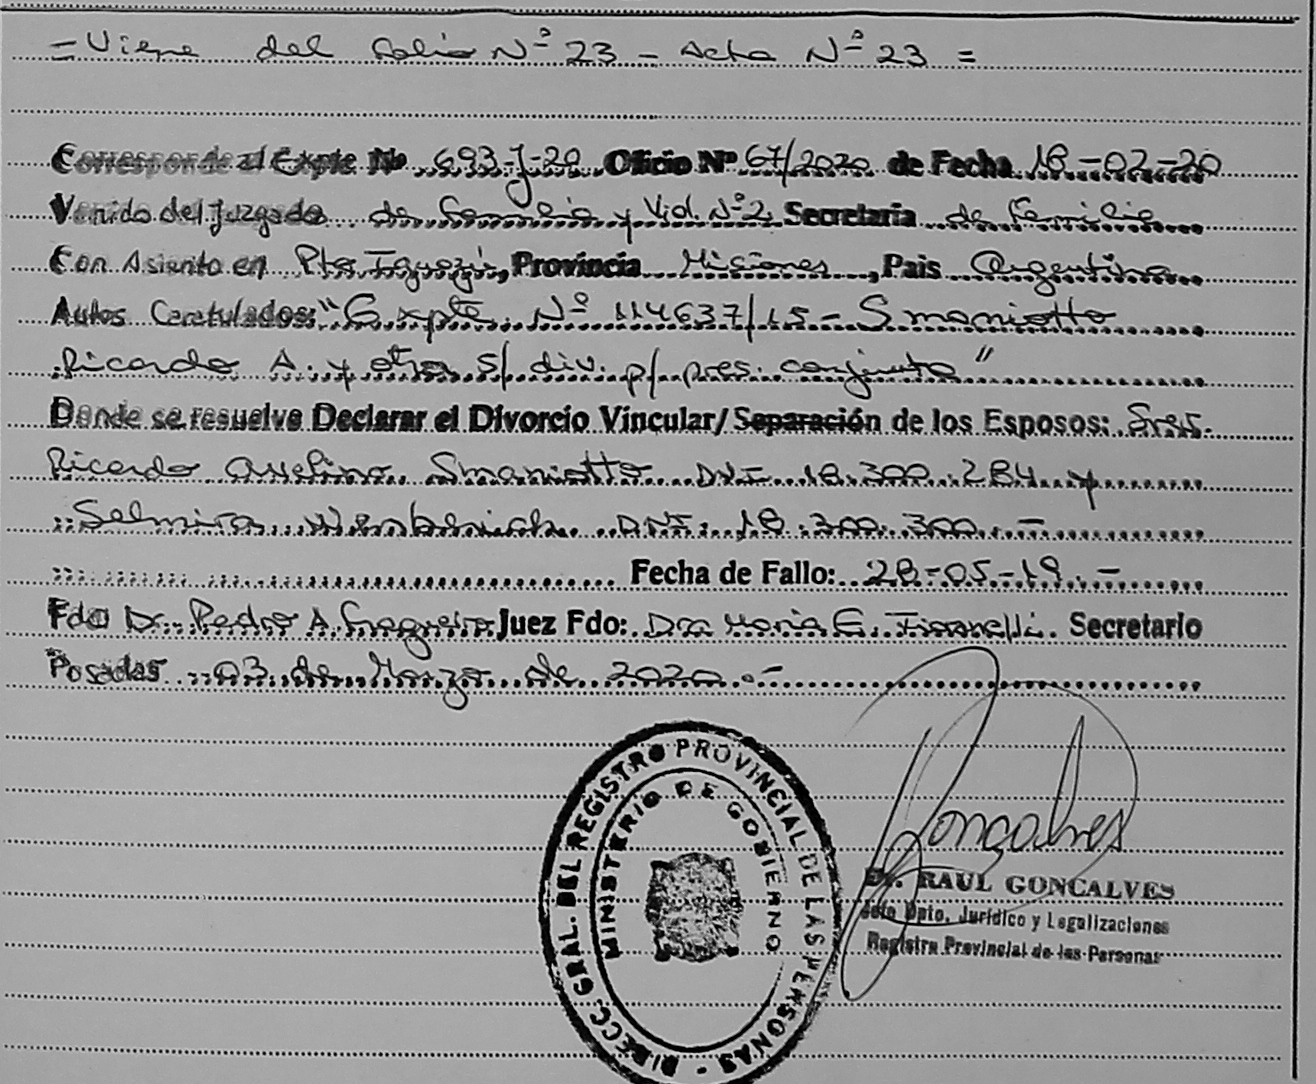 = Viene del Folio Nº 23 - Acta Nº 23 =
Corresponde al Expte No 693-J-20 Oficio Nº 67/2020 de Fecha 18-02-20
Venido del Juzgado de Familia y Viol. Nº 2, Secretaria de Familia
Con Asiento en Pto Iguazú, Provincia Misiones, Pais Argentina
Autos Caratulados: "Expte. Nº 114637/15 - Smaniotto
Ricardo A. y otra s/ div. p/ pres. conjunta"
Donde se resuelve Declarar el Divorcio Vincular/ Separación de los Esposos: Srs.
Ricardo Avelino Smaniotto DNI 18.300.284 y
Selmira DNI. 18.300.300. -
Fecha de Fallo: 28-05-19. -
Fdo Dr. Pedro A. Juez Fdo: Dra Maria E. Secretario
Posadas 03 de Marzo de 2020. -
DIRECC. GRAL. DEL REGISTRO PROVINCIAL DE LAS PERSONAS -
MINISTERIO DE GOBIERNO
Gonçalves
Dr. RAUL GONCALVES
Jefe Dpto. Jurídico y Legalizaciones
Registro Provincial de las Personas